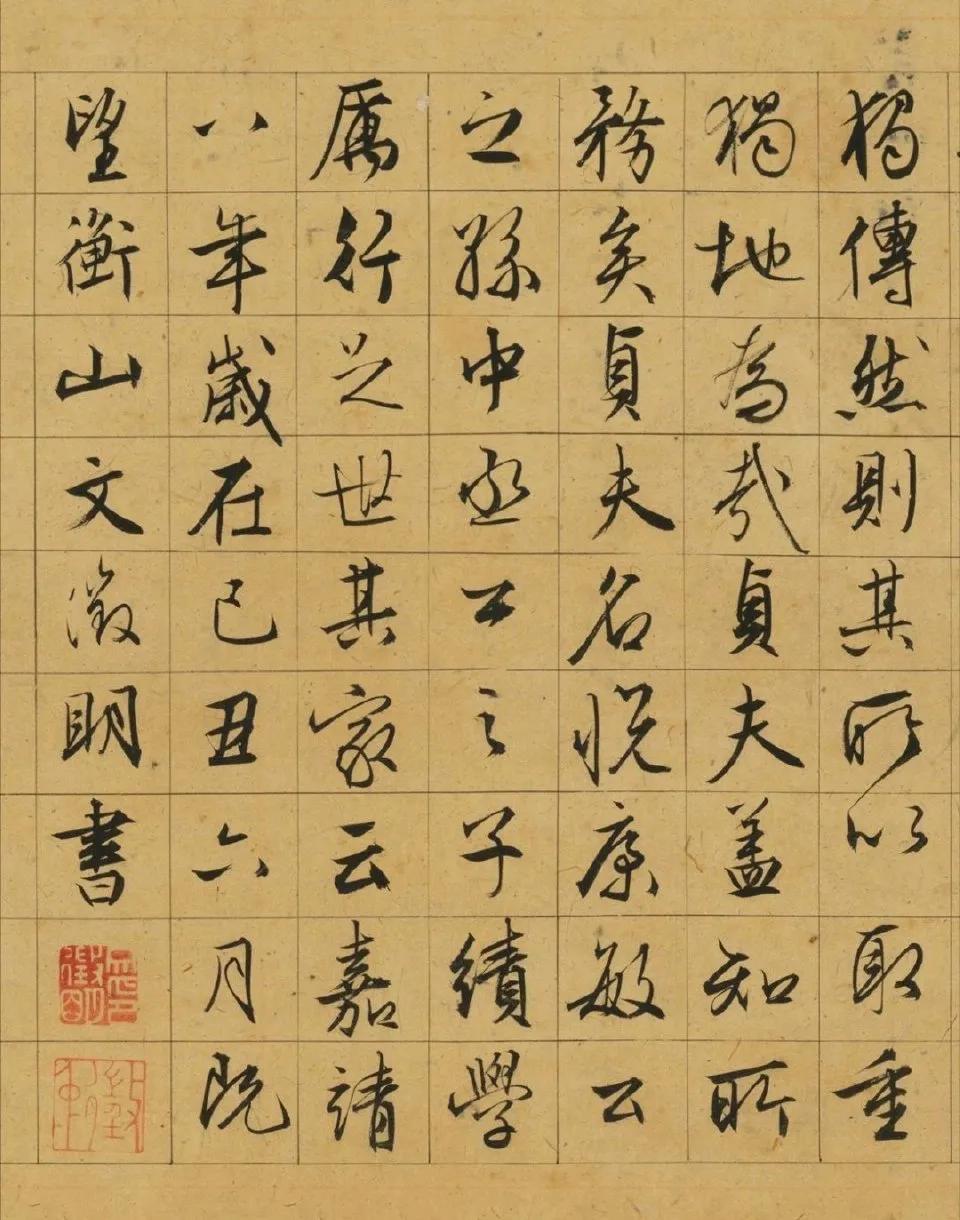 獨傳然則其所以取重
獨地為哉貞夫蓋知所
務矣貞夫名悦康敏公
之孫中丞公之子績學
厲行足世其家云嘉靖
八年歲在己丑六月既
望衡山文徵明書